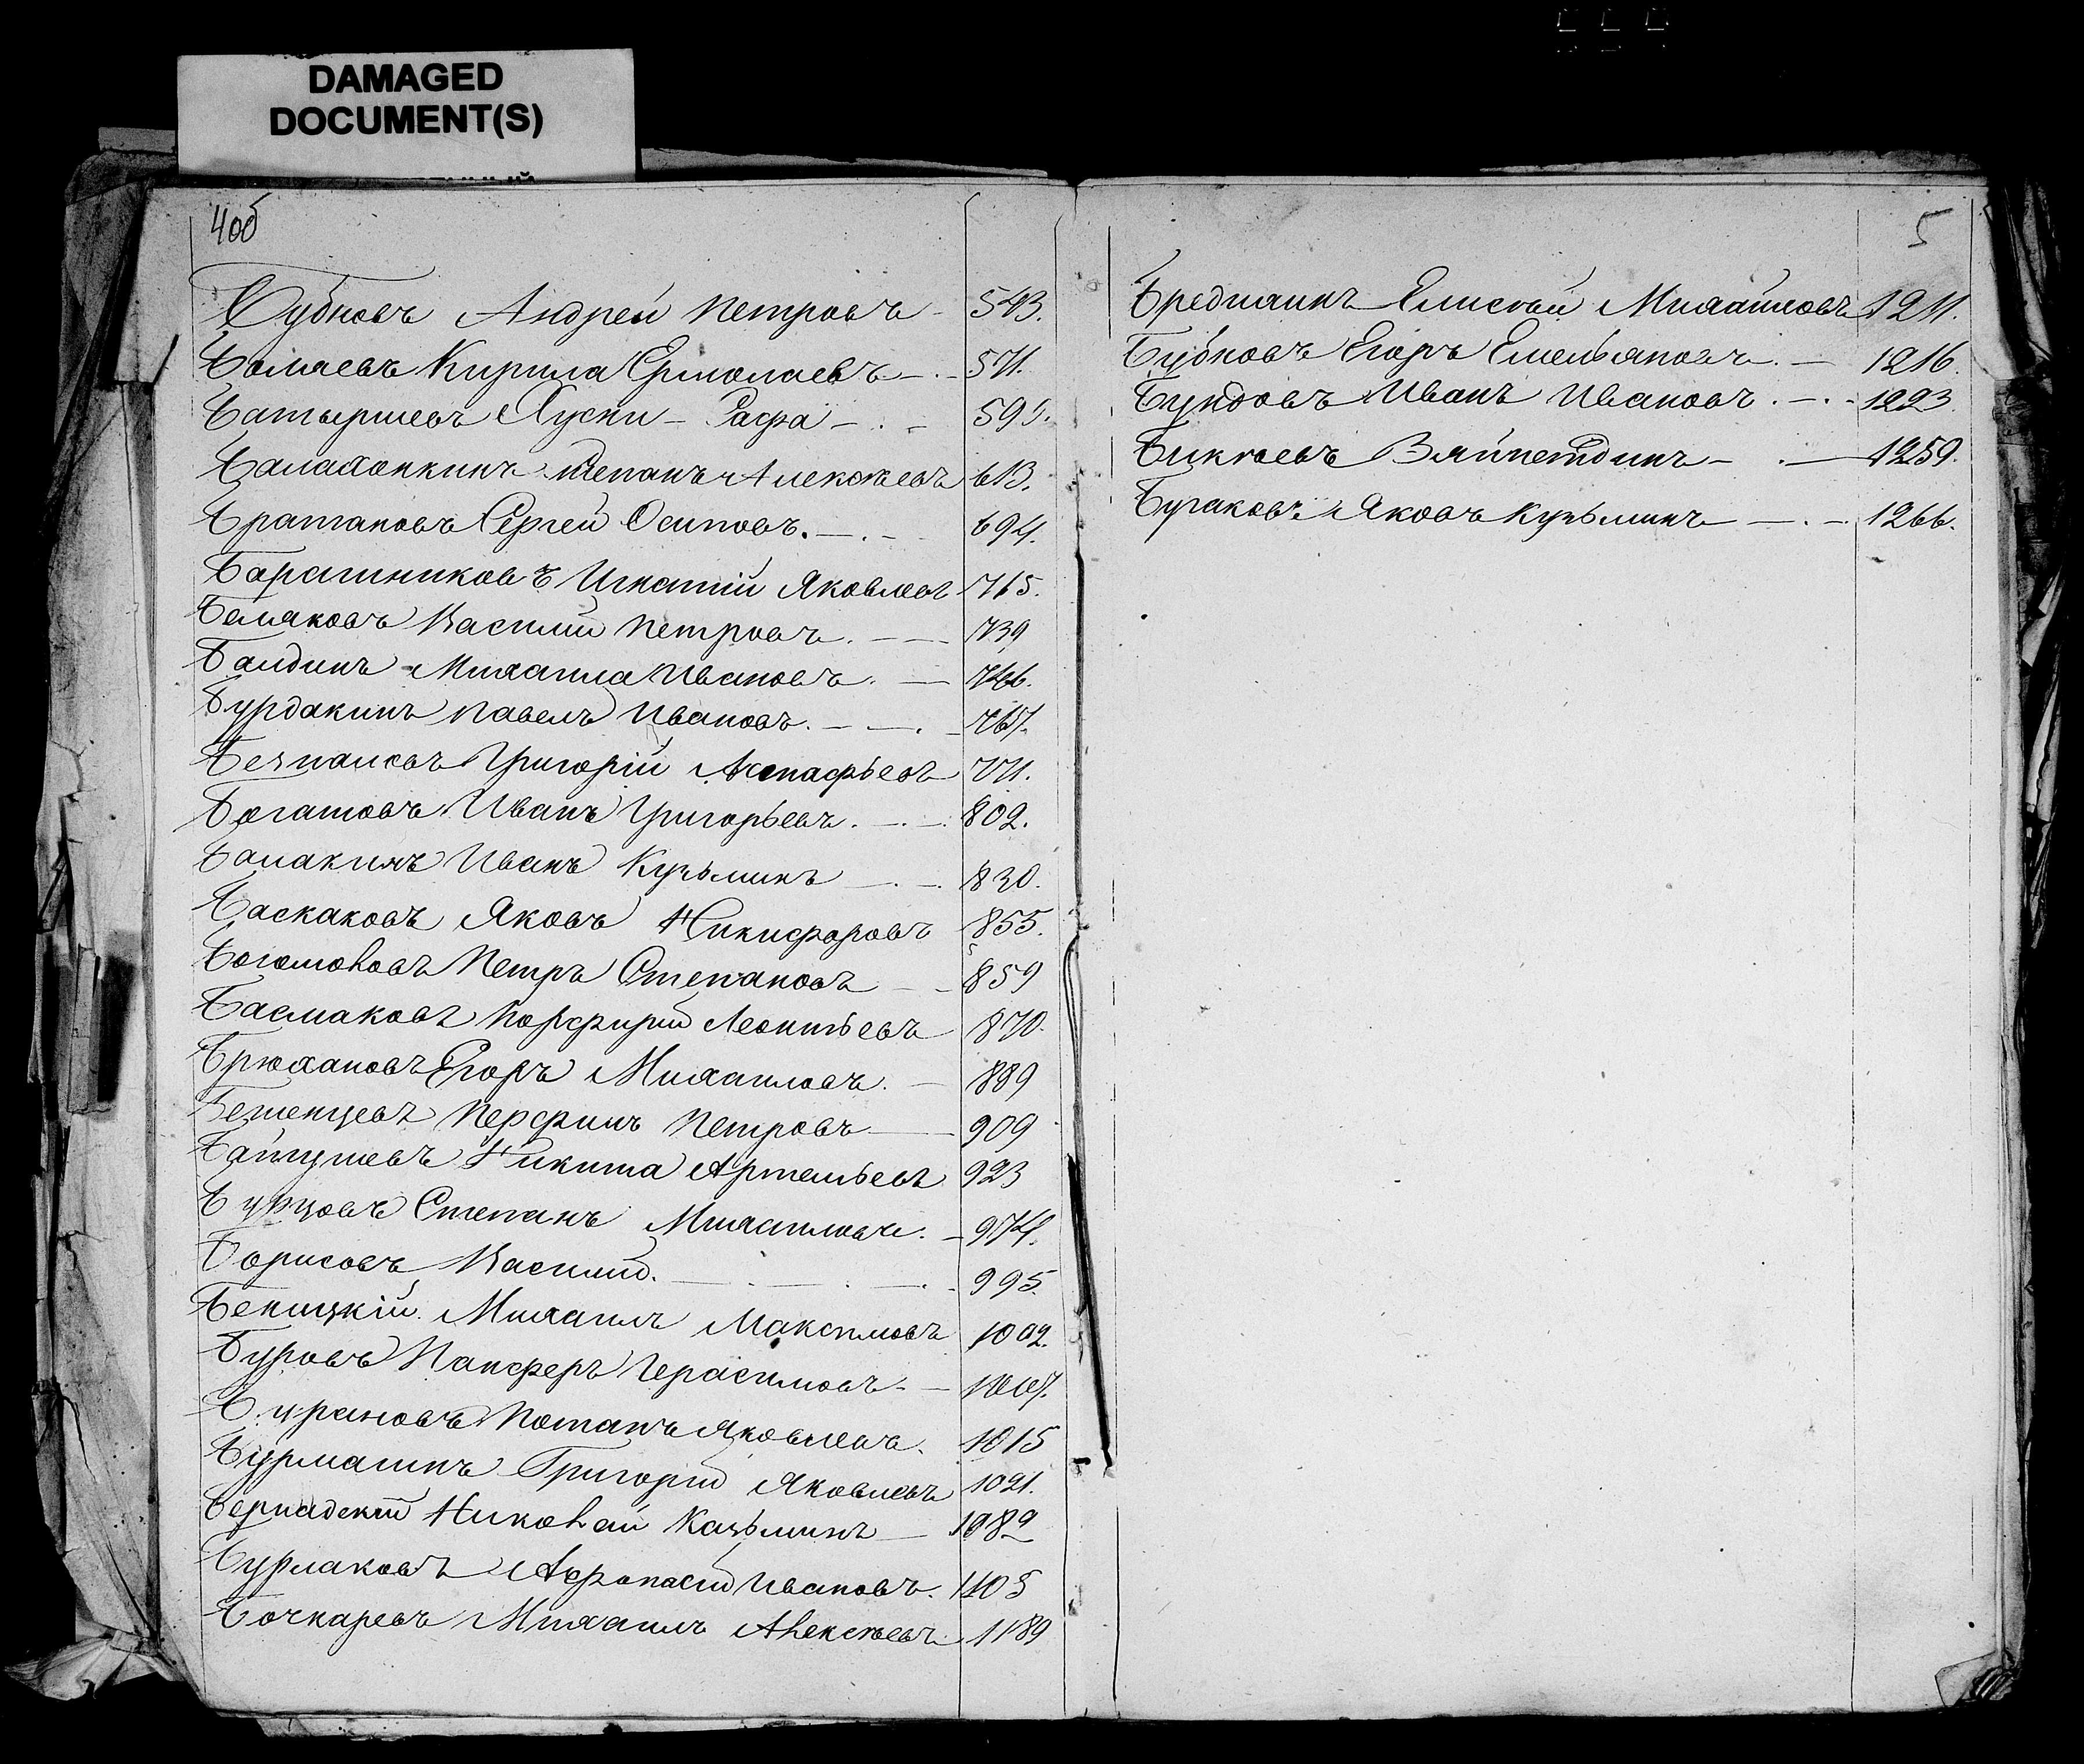 DAMAGED
DOCUMENT(S)
4об
Бубновъ Андрей Петровъ - 543.
Боляевъ Кирила Ермолаевъ - 571.
Батыршевъ Хусни - Рафа - 595.
Балахонкинъ Степанъ Алексѣевъ 613.
Братановъ Сергей Осиповъ. - 694.
Барашниковъ Игнатій Яковлевъ 715.
Беляковъ Василий Петровъ. - 739
Балдинъ Михаила Ивановъ. - 766.
Бурдакинъ Павелъ Ивановъ. - 767.
Григорій 771.
Богатовъ Иванъ Григорьевъ. - 802.
Балакинъ Иванъ Кузьминъ - 830.
Баскаковъ Яковъ Никифоровъ 855.
Богомоловъ Петръ Степановъ - 859
Басмаковъ Порфирий Леонтьевъ 870.
Брюхановъ Егоръ Михаиловъ. - 889
Бешенцевъ Перфилъ Петровъ - 909
Байгушевъ Никита Артемьевъ 923
Бурцовъ Степанъ Михаиловъ. - 974.
Борисовъ Василий. - 995.
Беницкій Михаилъ Максимовъ 1002.
Буровъ Панферъ Герасимовъ. - 1007.
Бурановъ Потапъ Яковлевъ. 1015
Бурмашинъ Григорій Яковлевъ 1021.
Бернадскій Николай Казьминъ - 1089
Бурлаковъ Афонасій Ивановъ. 1105
Бочкаревъ Михаилъ Алексѣевъ 1189
5
Бредманнъ Елисѣй Михайловъ 1211.
Бубновъ Егоръ Емельяновъ. - 1216.
Бундовъ Иванъ Ивановъ. - 1223.
Бикѣевъ Зяйнетдинъ - 1259.
Бугаковъ Яковъ Кузьминъ - 1266.